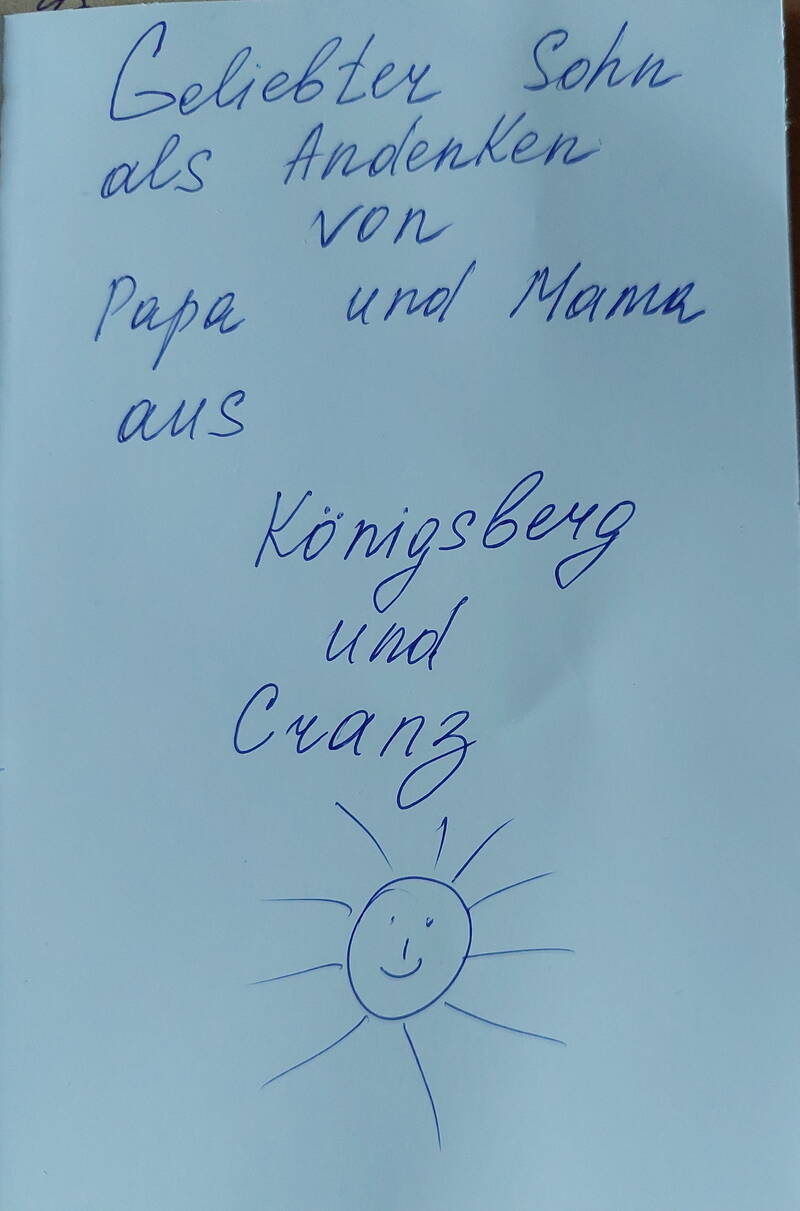 Geliebter Sohn
als Andenken
von
Papa und Mama
aus
Königsberg
und
Cranz